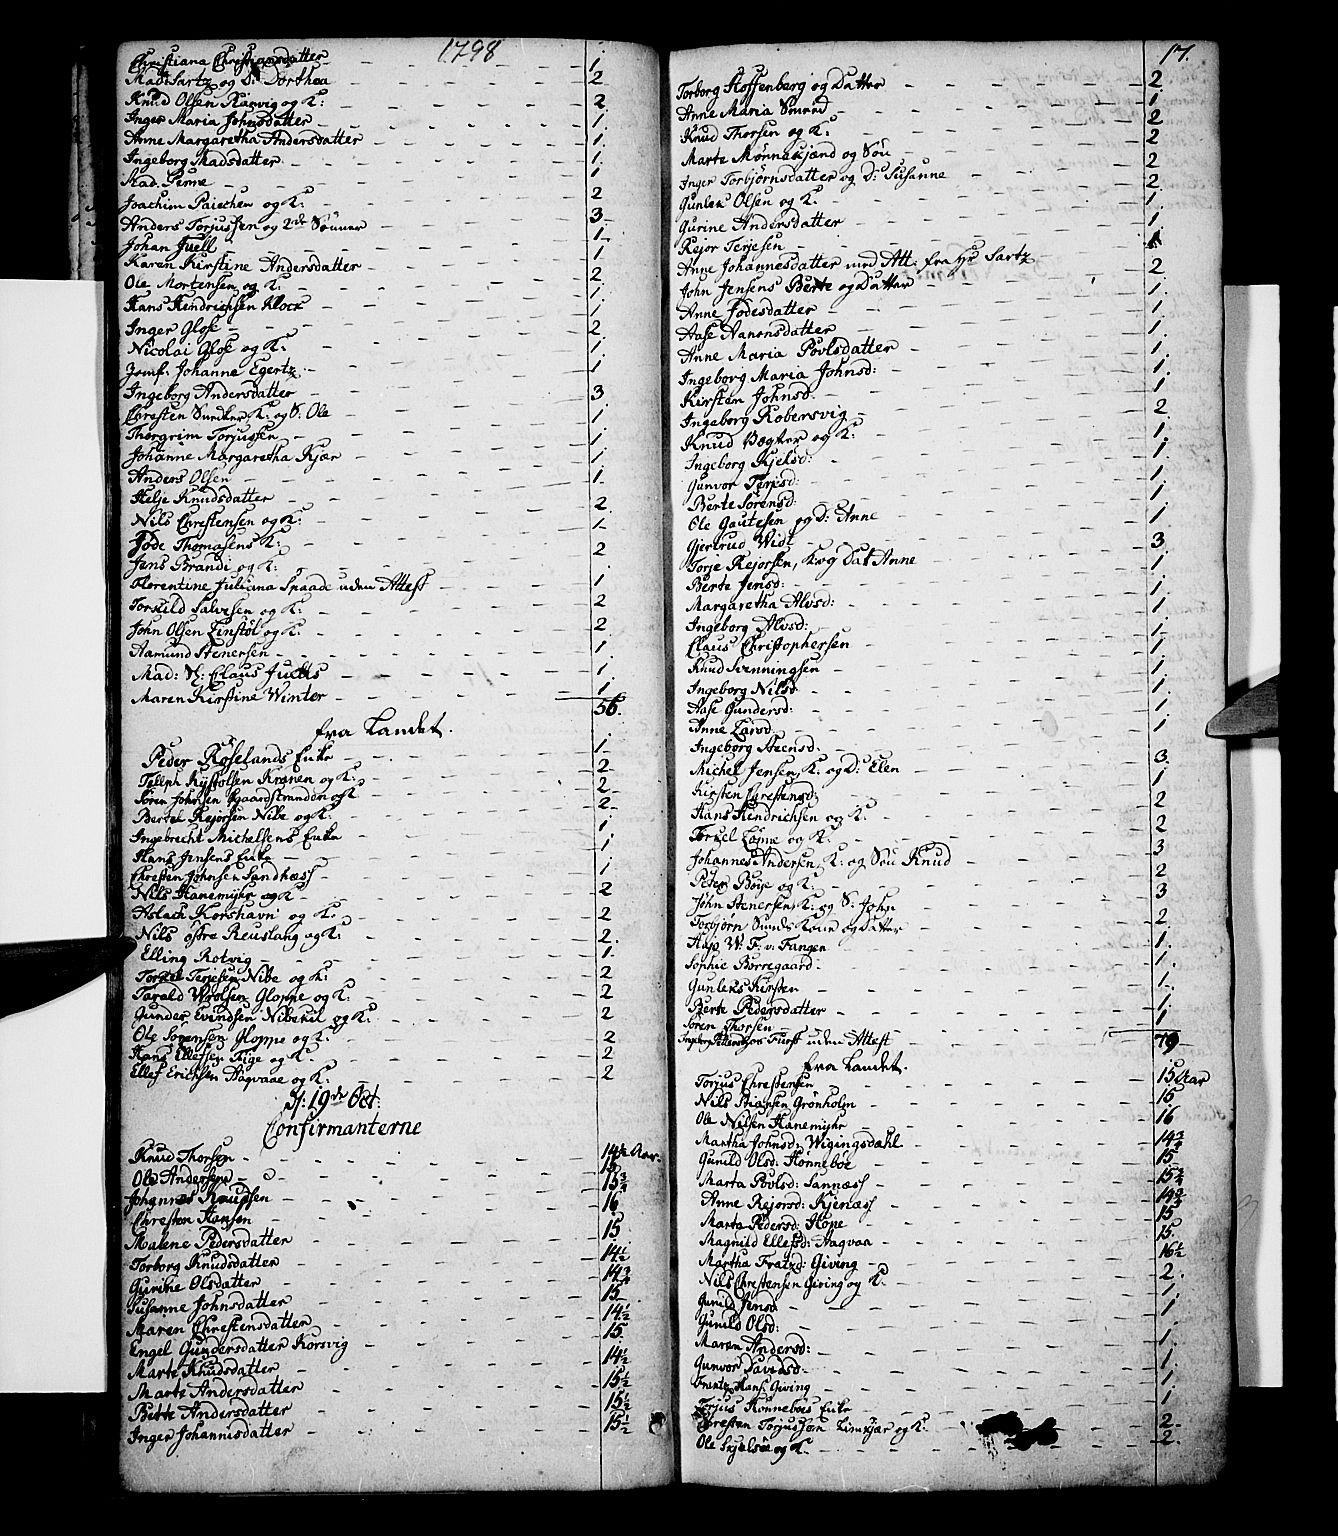 1798
Christiana Christiansdatter 1.
Mad: Sartz og D: Dorthea 2
Knud Olsen Rarvig og K: 2.
Inger Maria Johnsdatter 1.
Anne Margaretha Andersdatter 1.
Ingeborg Madsdatter 1.
Mad. Perne 1
Joachim Paischen og K: 2
Anders Torjussen og 2de Sønner 3
Johan Juell 1.
Karen Kirstine Andersdatter 1
Ole Mortensen og K. 2.
Hans Hendrichsen Klock 1.
Inger Glose 1.
Nicolai Glose og K: 2.
Jomf. Johanne Egertz 1.
Ingeborg Andersdatter 1
Chresten K: og S: Ole 3
Thorgrim Torjussen 1.
Johanne Margaretha Kjær 1.
Anders Olsen 1.
Helje Knudsdatter 1.
Nils Chrestensen og K: 2.
Jode Thomasens K: 1.
Jens Brandi og K: 2
Florentine Juliana Spaade uden Attest 1.
Torkild Salvesen og K: 2
John Olsen Linstøl og K: 2
Aamund Stenersen 1.
Mad: Sl: Claus Juells 1.
Maren Kirstine Winter 1.
56.
fra Landet.
Peder Røselands Enke 1.
Tellph Kistolsen Kranen og K: 2
Søren Johnsen Aagaardstranden og K 2
Bertel Rejorsen Nibe og K: 2
Ingebrecht Michelsens Enke 1.
Hans Jensens Enke 1.
Chresten Johnsen Sandnæss 1
Nils Hanemyhr og K 2
Aslach Korshavn og K: 2
Nils østre Reuslang og K: 2.
Elling Rotvig 1.
Torkel Terjesen Nibe og K: 2
Tarald Wrolsen Gloppe og K. 2
Gunder Evindsen Nibekil og K: 2
Ole Sørensen Gloppe og K: 2
Hans Ellefsen Rige og K 2
Ellef Erichsen Dagvaae og K: 2
d: 19de Oct:
Confirmanterne
Knud Thorsen 14½ Aar.
Ole Andersen 15
Johannes Knudsen 15¾
Christen Hansen 16
Malene Pedersdatter 15
Torborg Knudsdatter 14½
Gurine Olsdatter 14¾
Susanne Johnsdatter 15
Maren Chrestensdatter 14½
Engel Gundersdatter Korsvig 15.
Marte Knudsdatter 14½
Marte Andersdatter 15½
Berte Andersdatter 15½
Inger Johannisdatter 15½
17.
Torborg Stoffenberg og Datter 2
Anne Maria Smaad 1
Knud Thorsen og K: 2
Marte Mønnekjænd og Søn 2
Inger Torbjørnsdatter og D: Susanne 2
Gunlek Olsen og K. 2.
Gurine Andersdatter 1.
Rejor Terjesen 1
Anne Johannesdatter med Att: fra Hr Sartz 1
John Jensens Berte og Datter 2
Anne Jodesdatter 1.
Aase Aanensdatter 1.
Anne Maria Povlsdatter 1.
Ingeborg Maria Johnsd: 1.
Kirsten Johnsd. 1.
Ingeborg Robersvig 1
Knud Bøgker og K: 2.
Ingeborg Kjelsd: 1.
Gunvor Terjesd: 1
Berte Sørensd: 1
Ole Gautesen og D: Anne
Gjertrud Widt 1
Torje Rejorsen, K. og Dat Anne 3
Berte Jensd: 1.
Margaretha Alvsd: 1.
Ingeborg Alvsd: 1.
Claus Christophersen 1
Knud Svenningsen 1
Ingeborg Nilsd 1.
Aase Gundersd: 1.
Anne Larsd 1
Ingeborg Steensd:
Michel Jensen, K. og D: Elen 3
Kirsten Chrestensd: 1
Hans Hendrichsen og K: 2
Torkel Løpne og K. 2
Johannes Andersen, K: og Søn Knud 3
Peter Bøye og K: 2
John Stenersen, K: og S: John 3
Torbjørn Sunds Kone og Datter 2
W. F. v. Fangen 1.
Sophie Borregaard 1.
Gunleks Kirsten 1.
Berte Pedersdatter 1.
Søren Thorsen 1
Furst uden Attest
79
fra Landet.
Torjus Chrestensen 15 Aar
Nils Stiansen Grønholm 15
Ole Nilsen Hanemyhr 16
Martha Johnsd: Wigingsdahl 14¾
Gunild Olsd: Hønnebøe 15
Marta Povlsd: Sannæss 15¾
Anne Rejorsd: Kjenæss 14¾
Marta Pedersd: Hope 15
Magnild Ellefsd: Aagvaa 15.
Martha Fratzd: Giving 16½
Nils Chrestensen Giving og K. 2.
Gunild Jensd 1.
Gunild Olsd: 1
Maren Andersd: 1.
Gunvor Davidsd: 1.
Frantz Hans: Giving 1
Torjus Rønnebøes Enke 1
Chresten Torjussen Linkjær og K. 2
Ole Skjelsøe og K. 2.